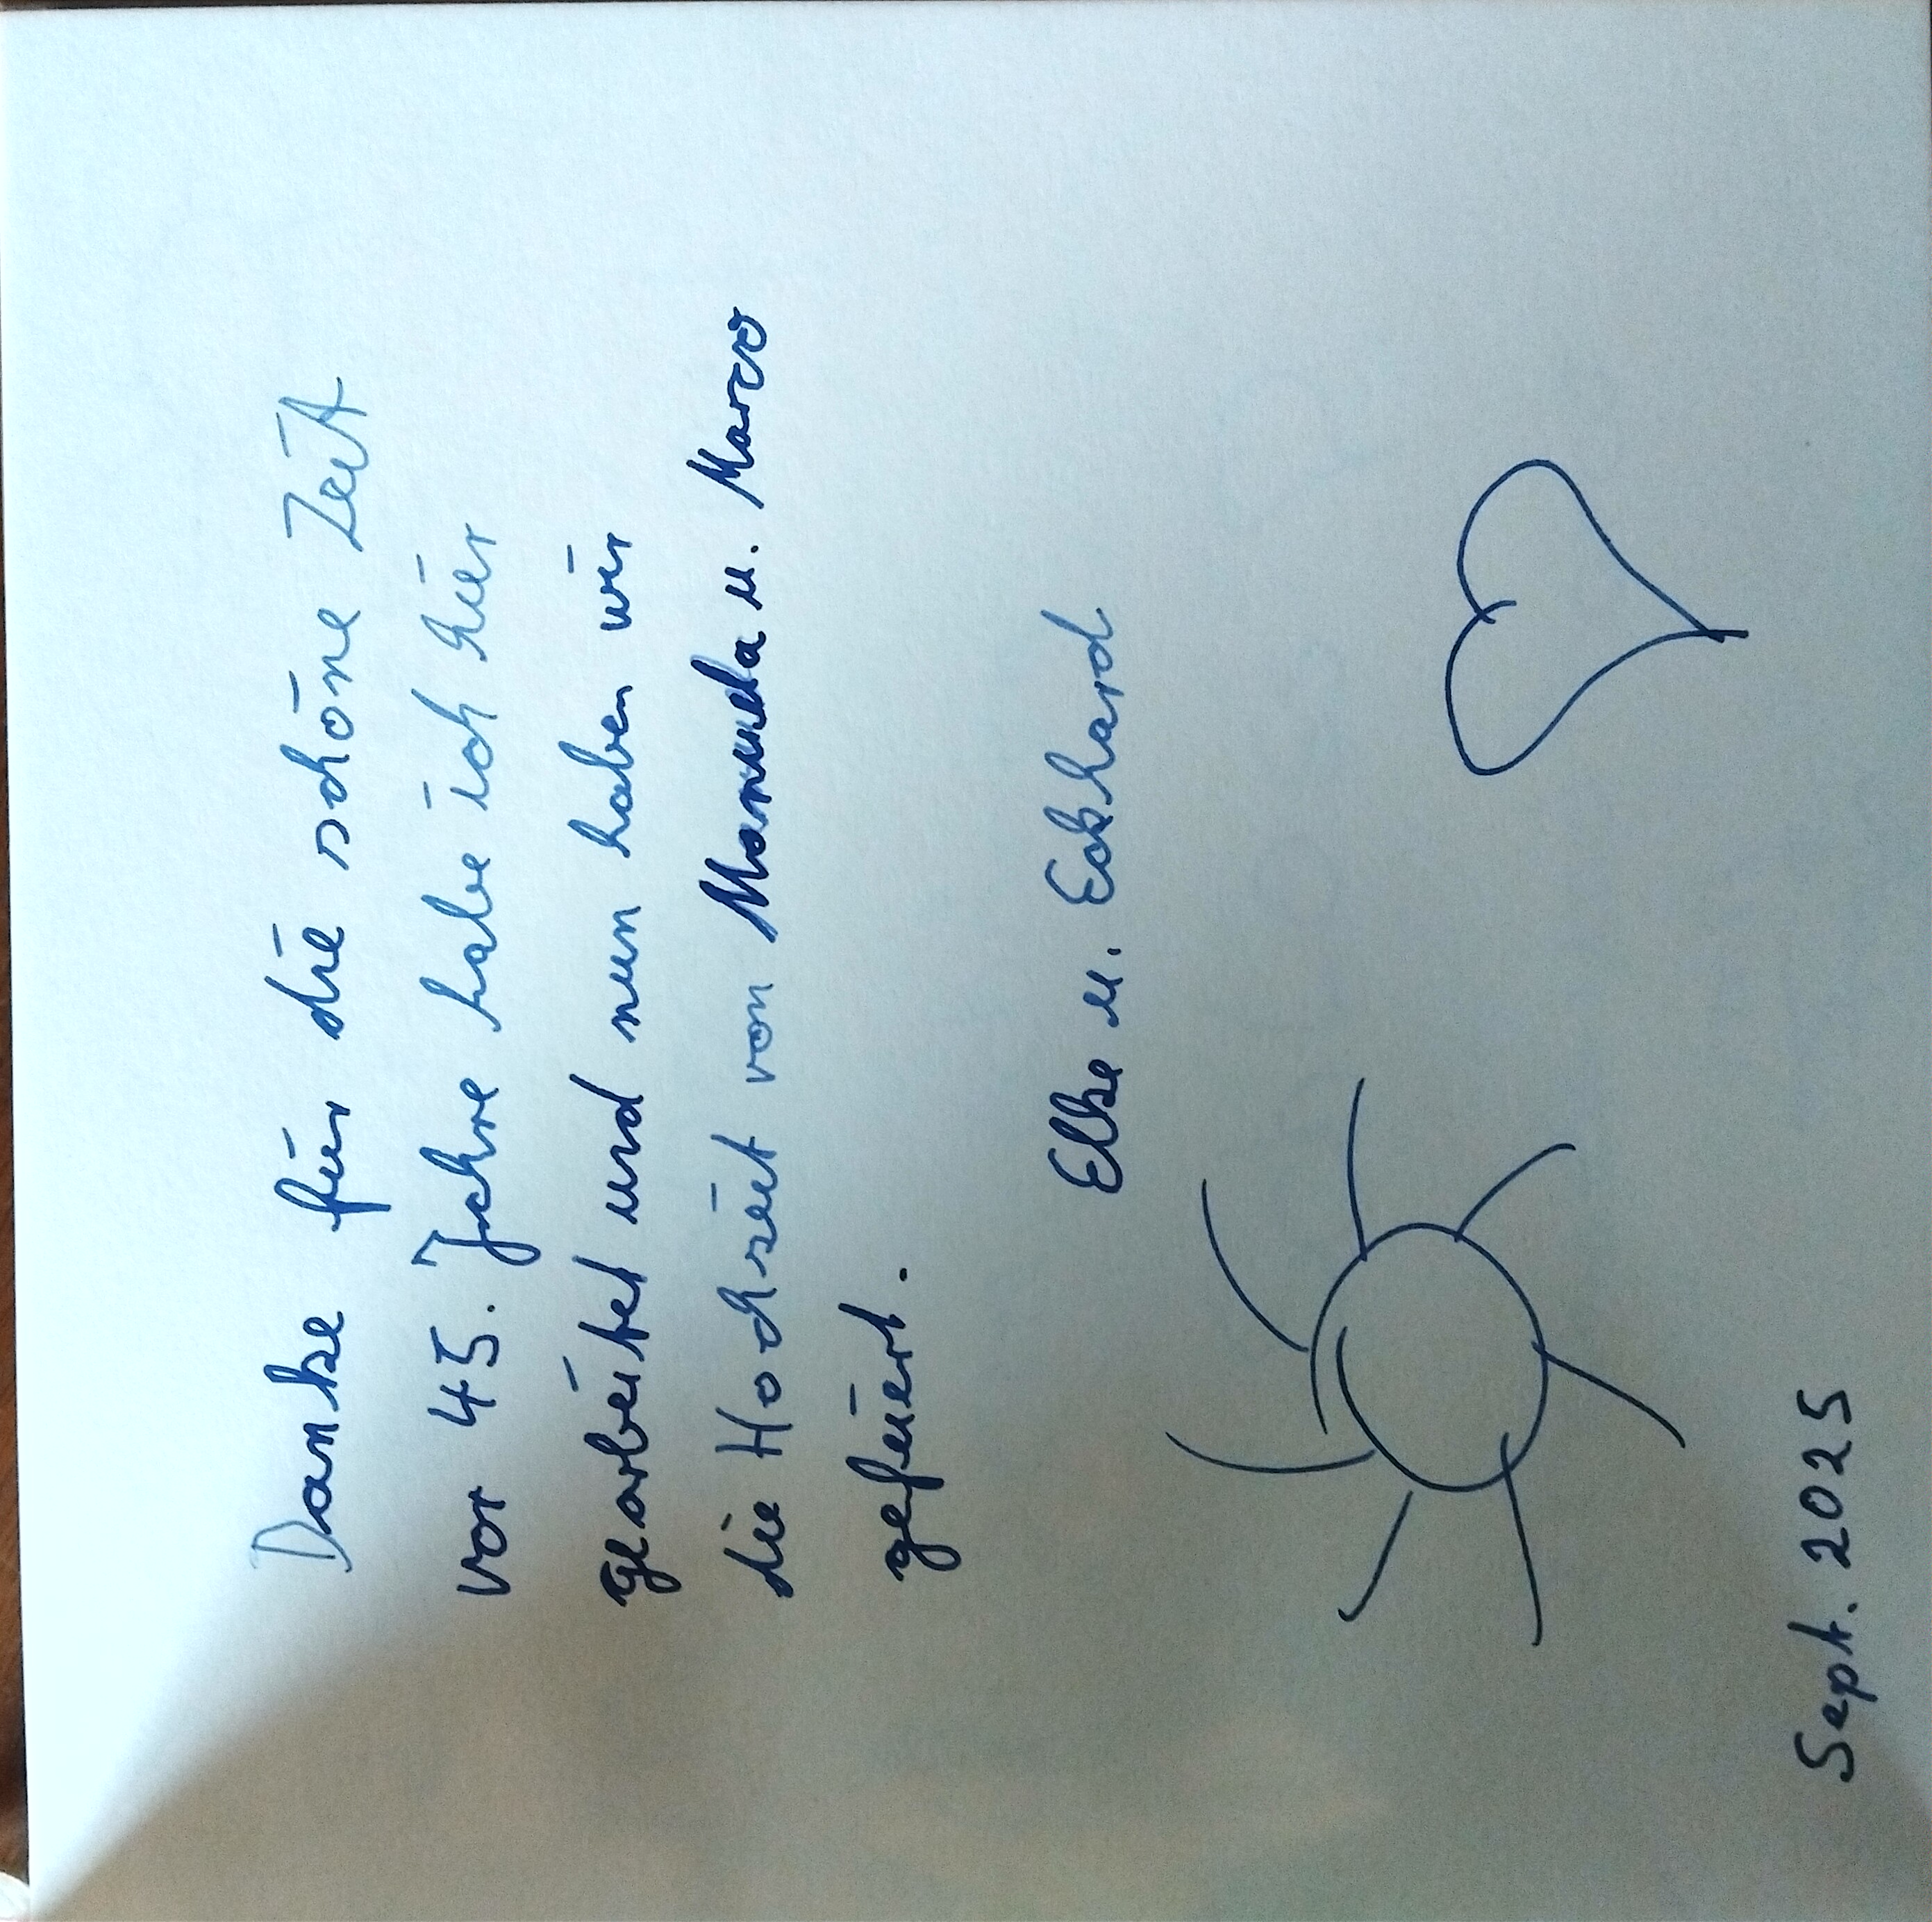 Danke für die schöne Zeit
vor 45. Jahre habe ich hier
gearbeitet und nun haben wir
die Hochzeit von Manuela u. Marco
gefeiert.
Elke u. Eckhard
Sept. 2025